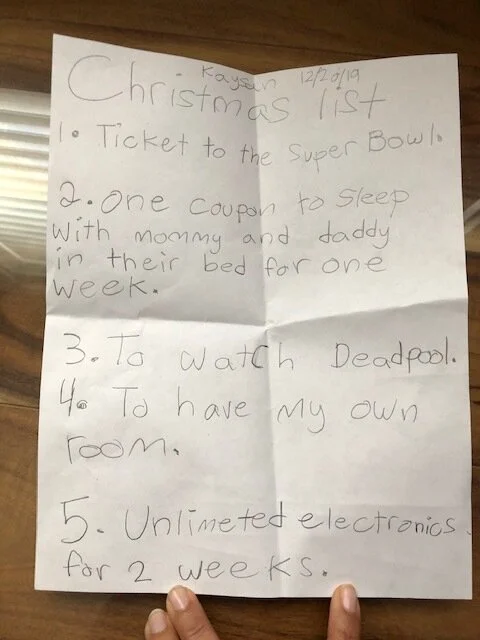 Kaysen 12/20/19
Christmas list
1. Ticket to the Super Bowl.
2. One coupon to Sleep
with mommy and daddy
in their bed for one
week.
3. To watch Deadpool.
4. To have my own
room.
5. Unlimeted electronics
for 2 weeks.